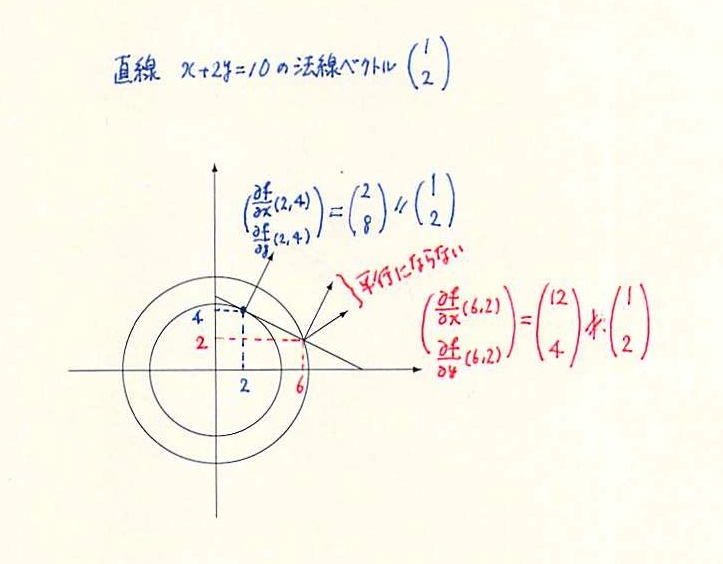 直線 x+2y=10 の法線ベクトル (1 2)
(∂f/∂x(2,4) ∂f/∂y(2,4)) = (2 8) // (1 2)
}平行にならない
(∂f/∂x(6,2) ∂f/∂y(6,2)) = (12 4) ∦ (1 2)
4
2
2
6